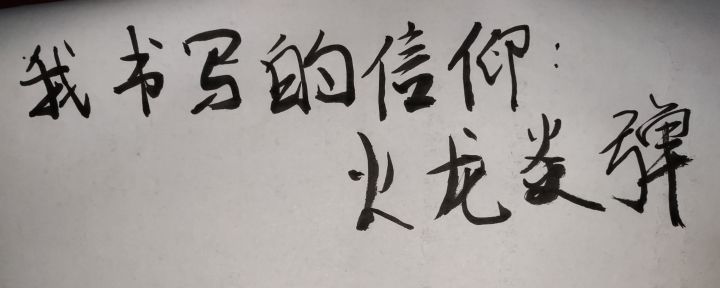 我书写的信仰：
火龙炎弹